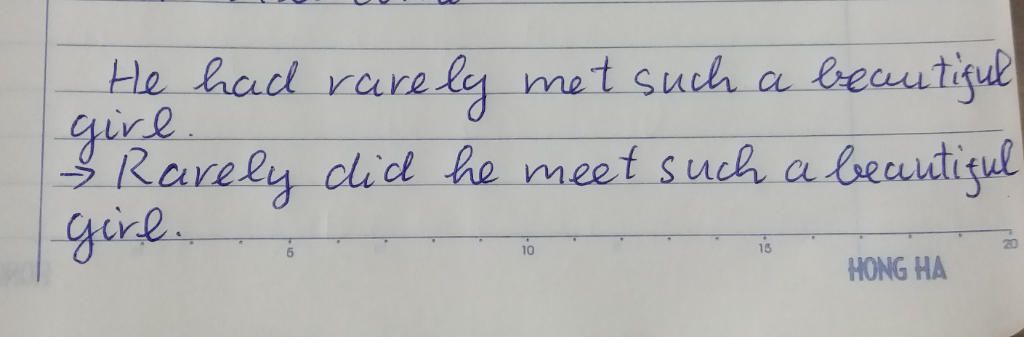 He had rarely met such a beautiful
girl.
→ Rarely did he meet such a beautiful
girl.
5 10 15 20
HONG HA